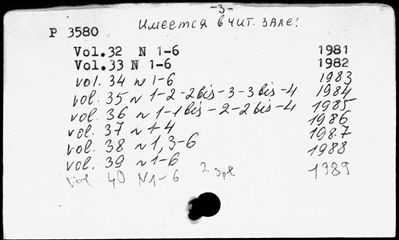 -3-
Имеется в чит. зале!
P 3580
Vol.32 N 1-6 1981
Vol.33 N 1-6 1982
vol. 34 N 1-6 1983
vol. 35 N 1-2-2bis-3-3bis-4 1984
vol. 36 N 1-1bis-2-2bis-4 1985
vol. 37 N 1-4 1986
vol. 38 N 1,3-6 1987
vol. 39 N 1-6 1988
vol 40 N1-6 1989